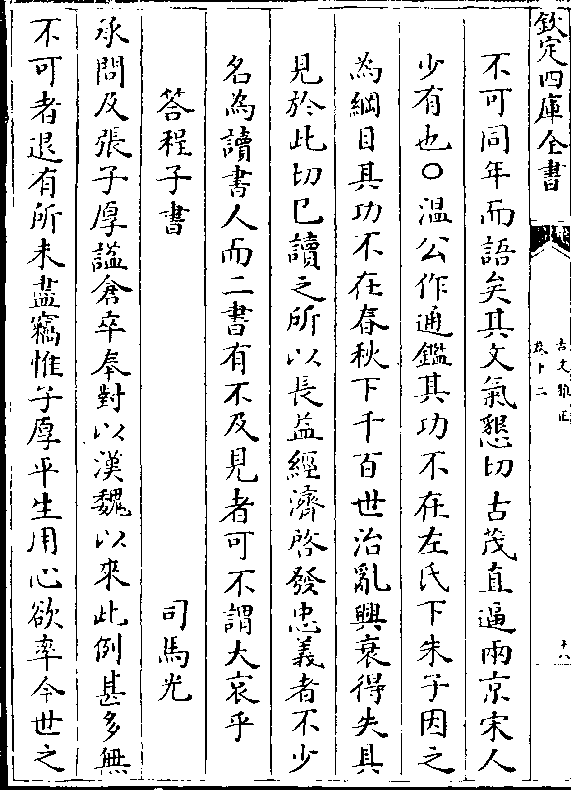 欽定四庫全書
古文雅正
卷十二
十八
不可同年而語矣其文氣懇切古茂直逼兩京宋人
少有也○溫公作通鑑其功不在左氏下朱子因之
為綱目其功不在春秋下千百世治亂興衰得失具
見於此切已讀之所以長益經濟啓發忠義者不少
名為讀書人而二書有不及見者可不謂大哀乎
答程子書
司馬光
承問及張子厚諡倉卒奉對以漢魏以來此例甚多無
不可者退有所未盡竊惟子厚平生用心欲率今世之